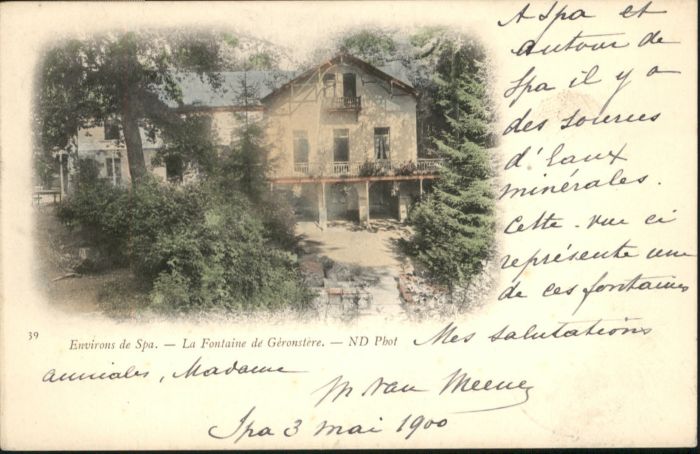 A Spa et
autour de
Spa il y a
des sources
d'Eaux
minérales.
Cette vue ci
représente une
de ces fontaines
39
Environs de Spa. — La Fontaine de Géronstère. — ND Phot
Mes salutations
amicales, Madame
M van Meene
Spa 3 mai 1900